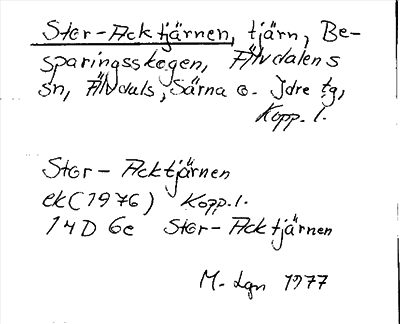 Stor-Acktjärnen, tjärn, Be-
sparingsskogen, Älvdalens
sn, Älvdals, Särna o. Idre tg,
Kopp. l.
Stor-Acktjärnen
ek (1976) Kopp. l.
14D 6e Stor-Acktjärnen
M. Lgn 1977